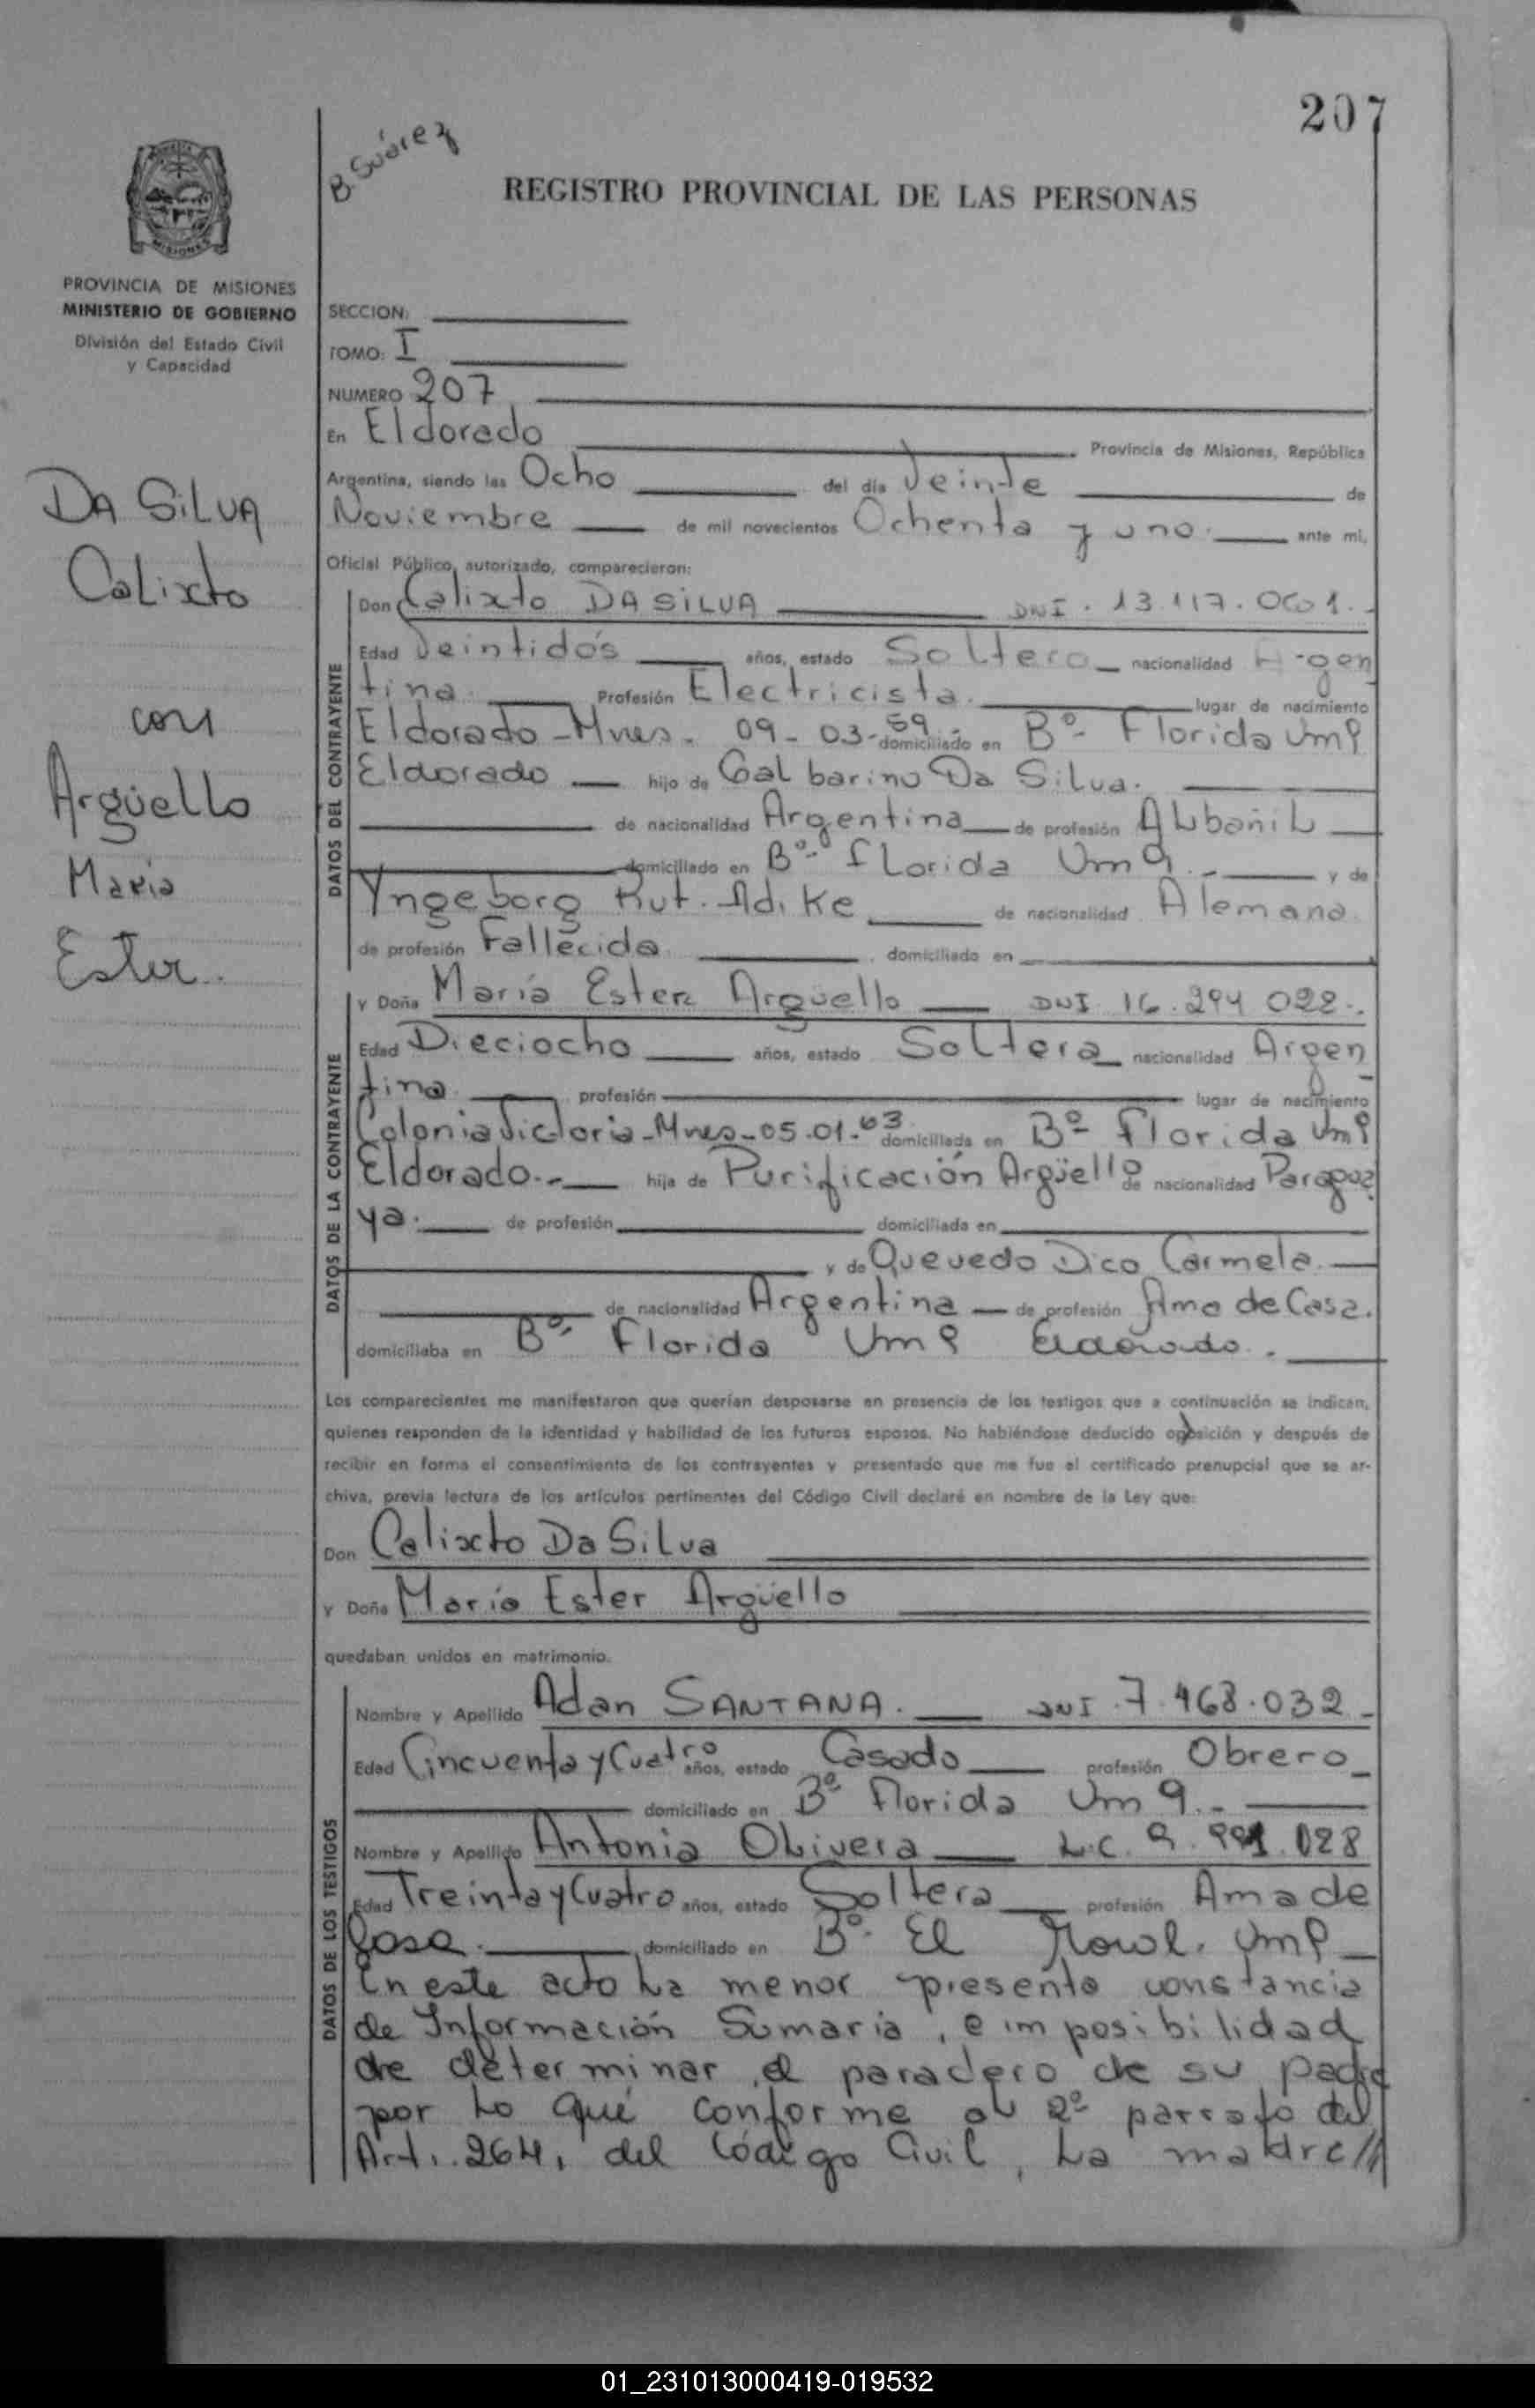 207
B. Suárez
REGISTRO PROVINCIAL DE LAS PERSONAS
MISIONES
PROVINCIA DE MISIONES
MINISTERIO DE GOBIERNO
División del Estado Civil
y Capacidad
DA SILVA
Calixto
con
Argüello
Maria
Ester.
SECCION:
TOMO: I
NUMERO 207
En Eldorado Provincia de Misiones, República
Argentina, siendo las Ocho del día Veinte de
Noviembre de mil novecientos Ochenta y uno. ante mi,
Oficial Público, autorizado, comparecieron:
DATOS DEL CONTRAYENTE
Don Calixto DA SILVA DNI. 13.117.001.-
Edad Veintidós años, estado Soltero nacionalidad Argen
tina. Profesión Electricista. lugar de nacimiento
Eldorado-Mnes. 09-03-59 domiciliado en Bº Florida Km9
Eldorado hijo de Galbarino Da Silva.
de nacionalidad Argentina de profesión Albañil
domiciliado en Bº Florida Km 9.- y de
Yngeborg Rut. Adike de nacionalidad Alemana.
de profesión Fallecida domiciliado en
DATOS DE LA CONTRAYENTE
y Doña María Ester Argüello DNI 16.294 022.-
Edad Dieciocho años, estado Soltera nacionalidad Argen
tina. profesión lugar de nacimiento
Colonia Victoria-Mnes-05.01.63 domiciliada en Bº Florida Km9
Eldorado.- hija de Purificación Argüello de nacionalidad Paragua
ya. de profesión domiciliada en
y de Quevedo Dico Carmela.
de nacionalidad Argentina de profesión Ama de Casa.
domiciliaba en Bº Florida Km 9 Eldorado.
Los comparecientes me manifestaron que querían desposarse en presencia de los testigos que a continuación se indican,
quienes responden de la identidad y habilidad de los futuros esposos. No habiéndose deducido oposición y después de
recibir en forma el consentimiento de los contrayentes y presentado que me fue el certificado prenupcial que se ar-
chiva, previa lectura de los artículos pertinentes del Código Civil declaré en nombre de la Ley que:
Don Calixto Da Silva
y Doña María Ester Argüello
quedaban unidos en matrimonio.
DATOS DE LOS TESTIGOS
Nombre y Apellido Adan SANTANA. DNI. 7.468.032
Edad Cincuenta y Cuatro años, estado Casado profesión Obrero
domiciliado en Bº Florida Km 9.-
Nombre y Apellido Antonia Olivera L.C. 9. 028
Edad Treinta y Cuatro años, estado Soltera profesión Ama de
Casa. domiciliado en Bº El Km9
En este acto la menor presenta constancia
de Información Sumaria, e imposibilidad
de determinar el paradero de su padre
por lo que conforme al 2º parrafo del
Art. 264, del Código Civil, la madre//
01_231013000419-019532